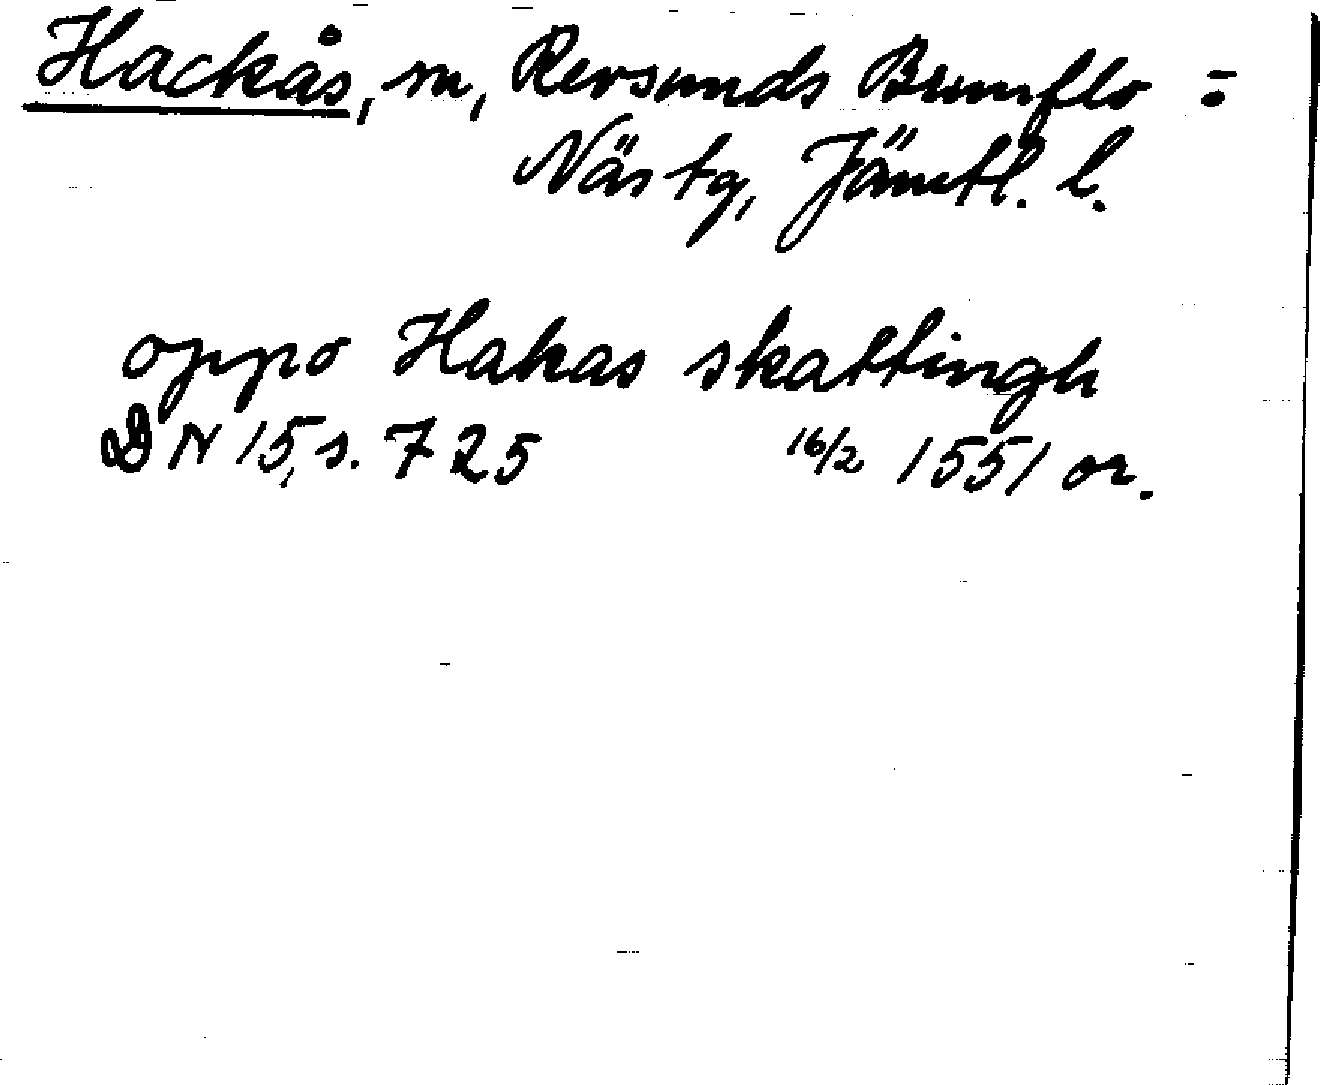 Hackås, sn, Revsunds Brunflo =
Näs tg, Jämtl. l.
oppo Hakas skattingh
DN 15, s. 725 16/2 1551 or.